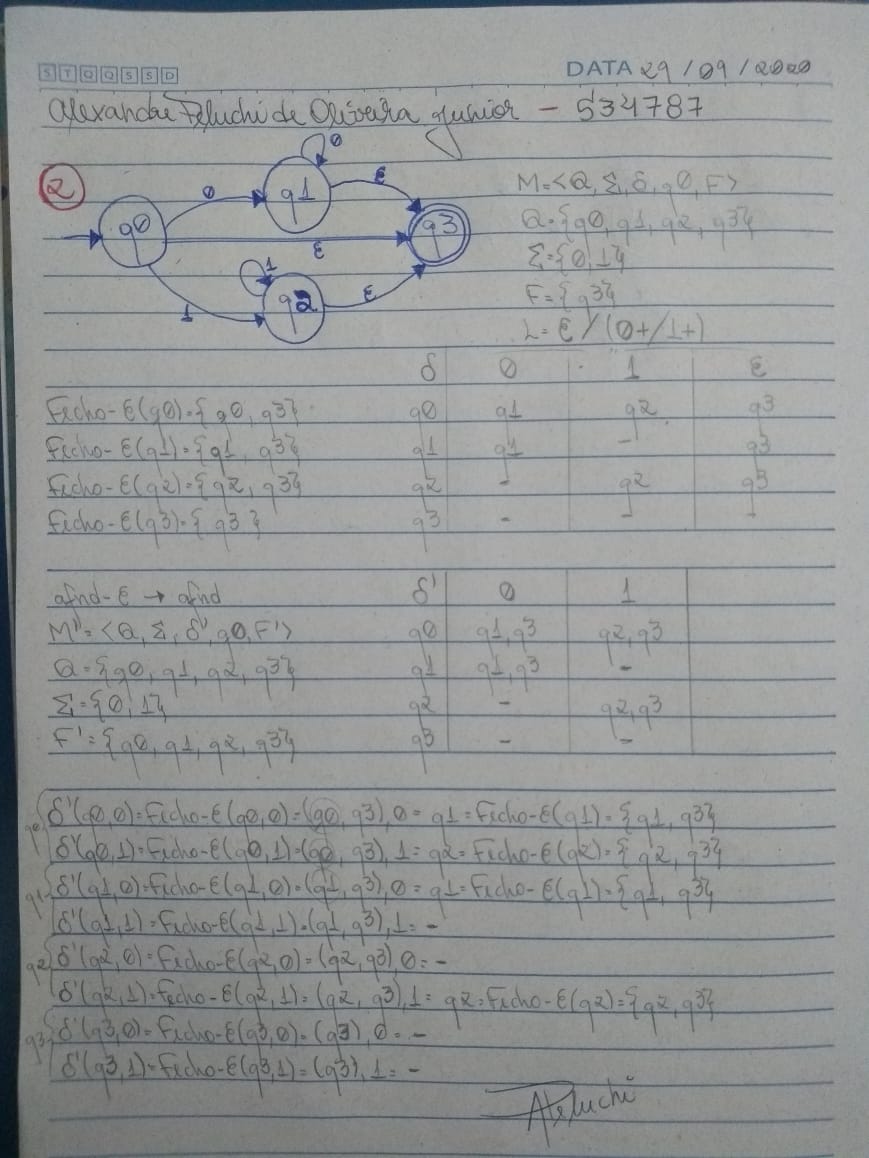 S T Q Q S S D
DATA 29/09/2020
Alexandre Peluchi de Oliveira Junior - 534787
2
q0 0 q1 0 ε q3
ε
1 q2 1 ε
M=<Q, Σ, δ, q0, F>
Q={q0, q1, q2, q3}
Σ={0, 1}
F={q3}
L= ε/(0+/1+)
δ 0 1 ε
Fecho-ε(q0)={q0, q3} q0 q1 q2 q3
Fecho-ε(q1)={q1, q3} q1 q1 - q3
Fecho-ε(q2)={q2, q3} q2 - q2 q3
Fecho-ε(q3)={q3} q3 - - -
afnd-ε → afnd δ' 0 1
M'=<Q, Σ, δ', q0, F'> q0 q1,q3 q2,q3
Q={q0, q1, q2, q3} q1 q1,q3 -
Σ={0, 1} q2 - q2,q3
F'={q0, q1, q2, q3} q3 - -
q0 δ'(q0,0)=Fecho-ε(q0,0)=(q0, q3),0= q1=Fecho-ε(q1)={q1, q3}
δ'(q0,1)=Fecho-ε(q0,1)=(q0, q3),1= q2=Fecho-ε(q2)={q2, q3}
q1 δ'(q1,0)=Fecho-ε(q1,0)=(q1, q3),0= q1=Fecho-ε(q1)={q1, q3}
δ'(q1,1)=Fecho-ε(q1,1)=(q1, q3),1= -
q2 δ'(q2,0)=Fecho-ε(q2,0)=(q2,q3),0= -
δ'(q2,1)=Fecho-ε(q2,1)=(q2, q3),1= q2=Fecho-ε(q2)={q2, q3}
q3 δ'(q3,0)=Fecho-ε(q3,0)=(q3),0= -
δ'(q3,1)=Fecho-ε(q3,1)=(q3),1= -
APeluchi